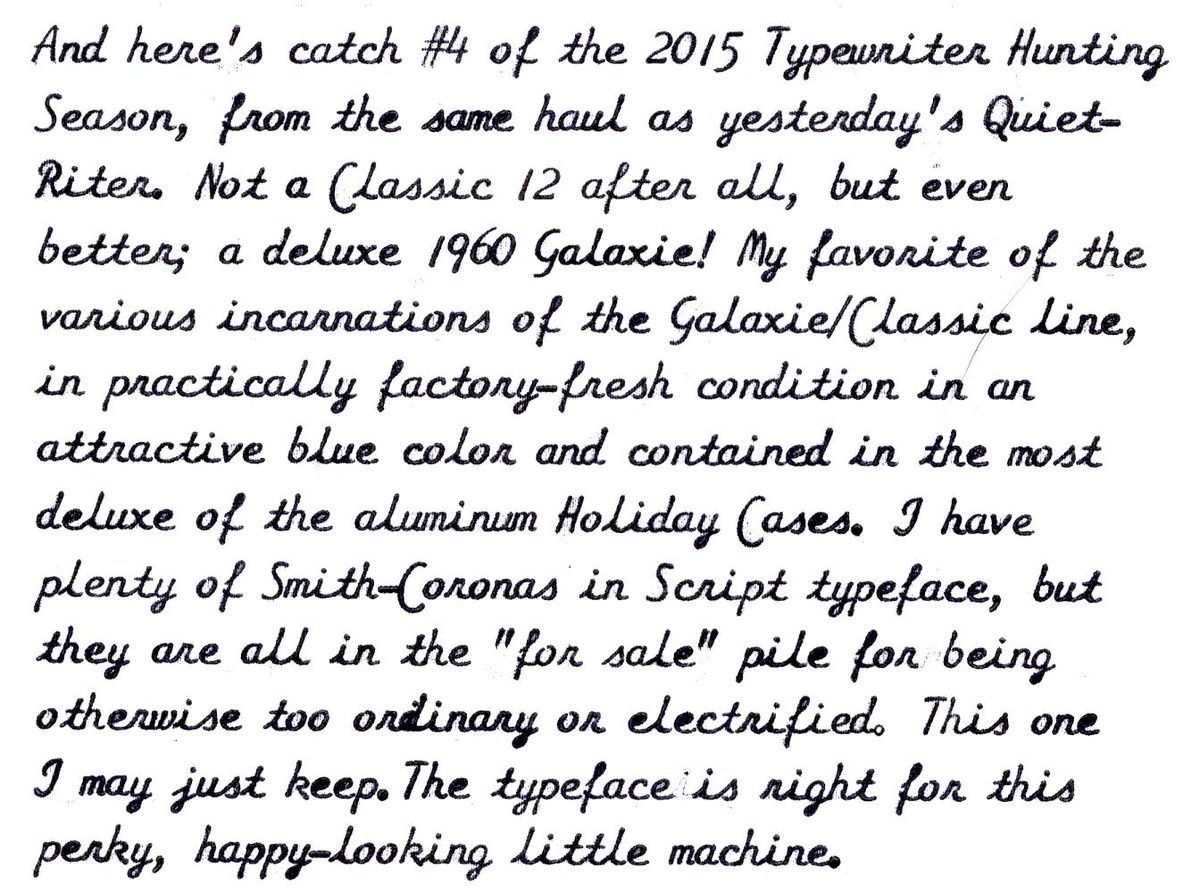 And here's catch #4 of the 2015 Typewriter Hunting
Season, from the same haul as yesterday's Quiet-
Riter. Not a Classic 12 after all, but even
better; a deluxe 1960 Galaxie! My favorite of the
various incarnations of the Galaxie/Classic line,
in practically factory-fresh condition in an
attractive blue color and contained in the most
deluxe of the aluminum Holiday Cases. I have
plenty of Smith-Coronas in Script typeface, but
they are all in the "for sale" pile for being
otherwise too ordinary or electrified. This one
I may just keep. The typeface is right for this
perky, happy-looking little machine.